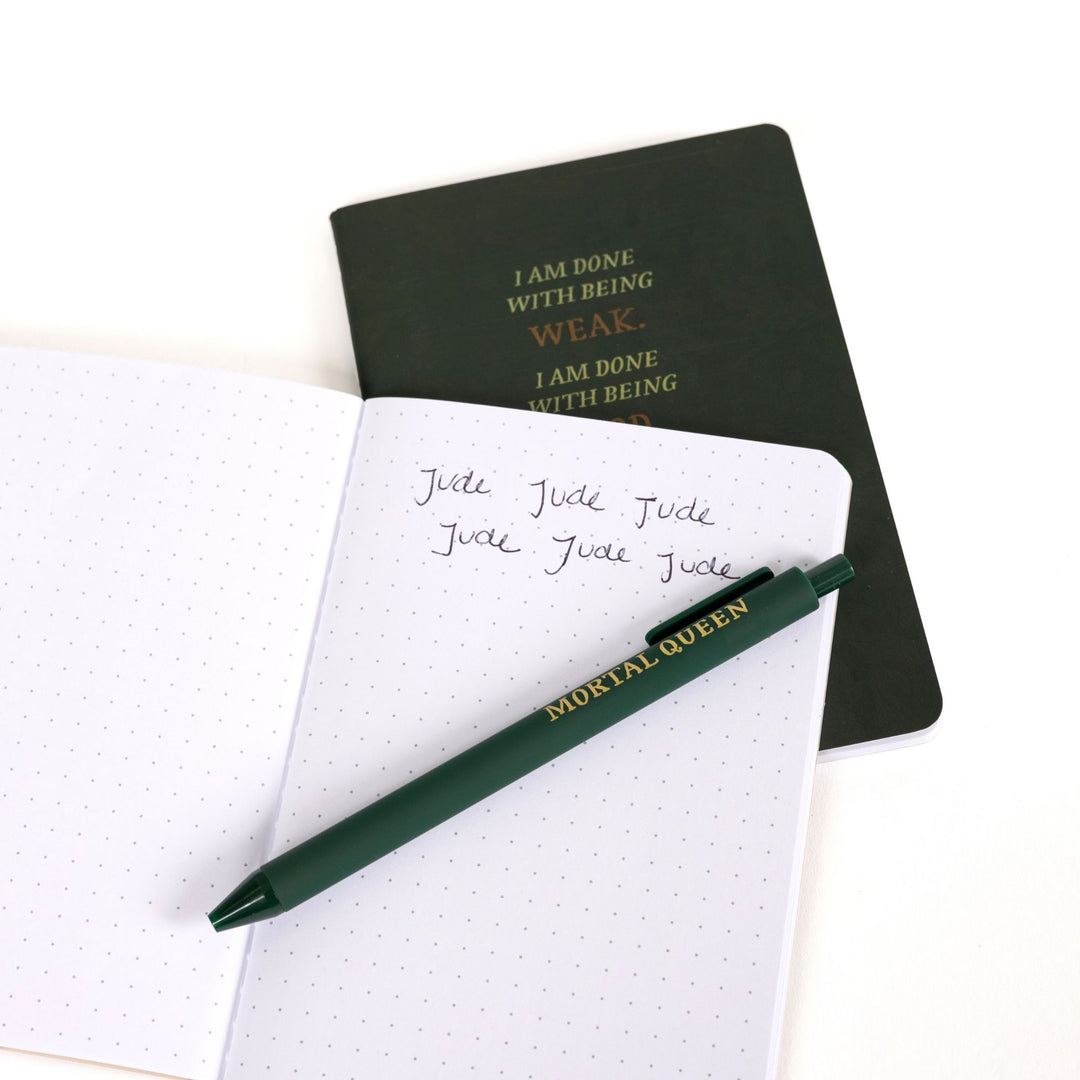 I AM DONE
WITH BEING
WEAK.
I AM DONE
WITH BEING
Jude Jude Jude
Jude Jude Jude
MORTAL QUEEN